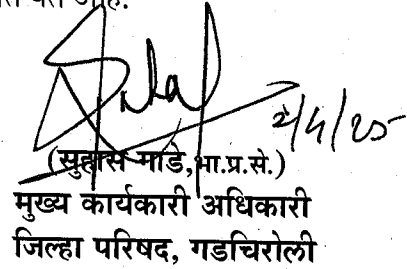 आहे.
2/4/25
(सुहास गाडे,भा.प्र.से.)
मुख्य कार्यकारी अधिकारी
जिल्हा परिषद, गडचिरोली